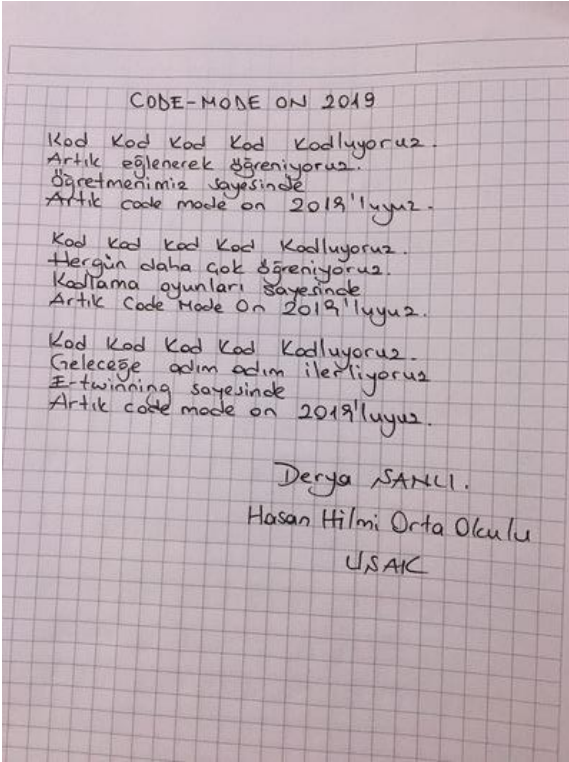 CODE-MODE ON 2019
Kod Kod Kod Kod Kodluyoruz.
Artık eğlenerek öğreniyoruz.
Öğretmenimiz sayesinde
Artık code mode on 2019'luyuz.
Kod Kod Kod Kod Kodluyoruz.
Hergün daha çok öğreniyoruz.
Kodlama oyunları sayesinde
Artık Code Mode On 2019'luyuz.
Kod Kod Kod Kod Kodluyoruz.
Geleceğe adım adım ilerliyoruz
E-twinning sayesinde
Artık code mode on 2019'luyuz.
Derya SANLI.
Hasan Hilmi Orta Okulu
USAK